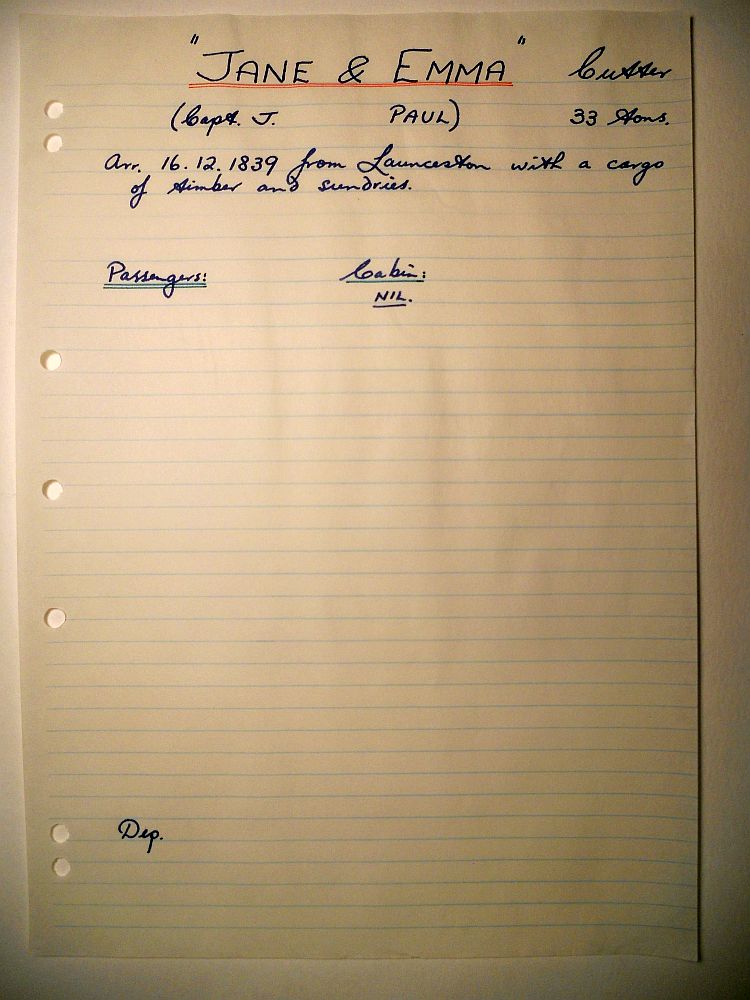 "JANE & EMMA" Cutter
(Capt. J. PAUL) 33 Tons.
Arr. 16.12.1839 from Launceston with a cargo
of timber and sundries.
Passengers: Cabin:
NIL.
Dep.